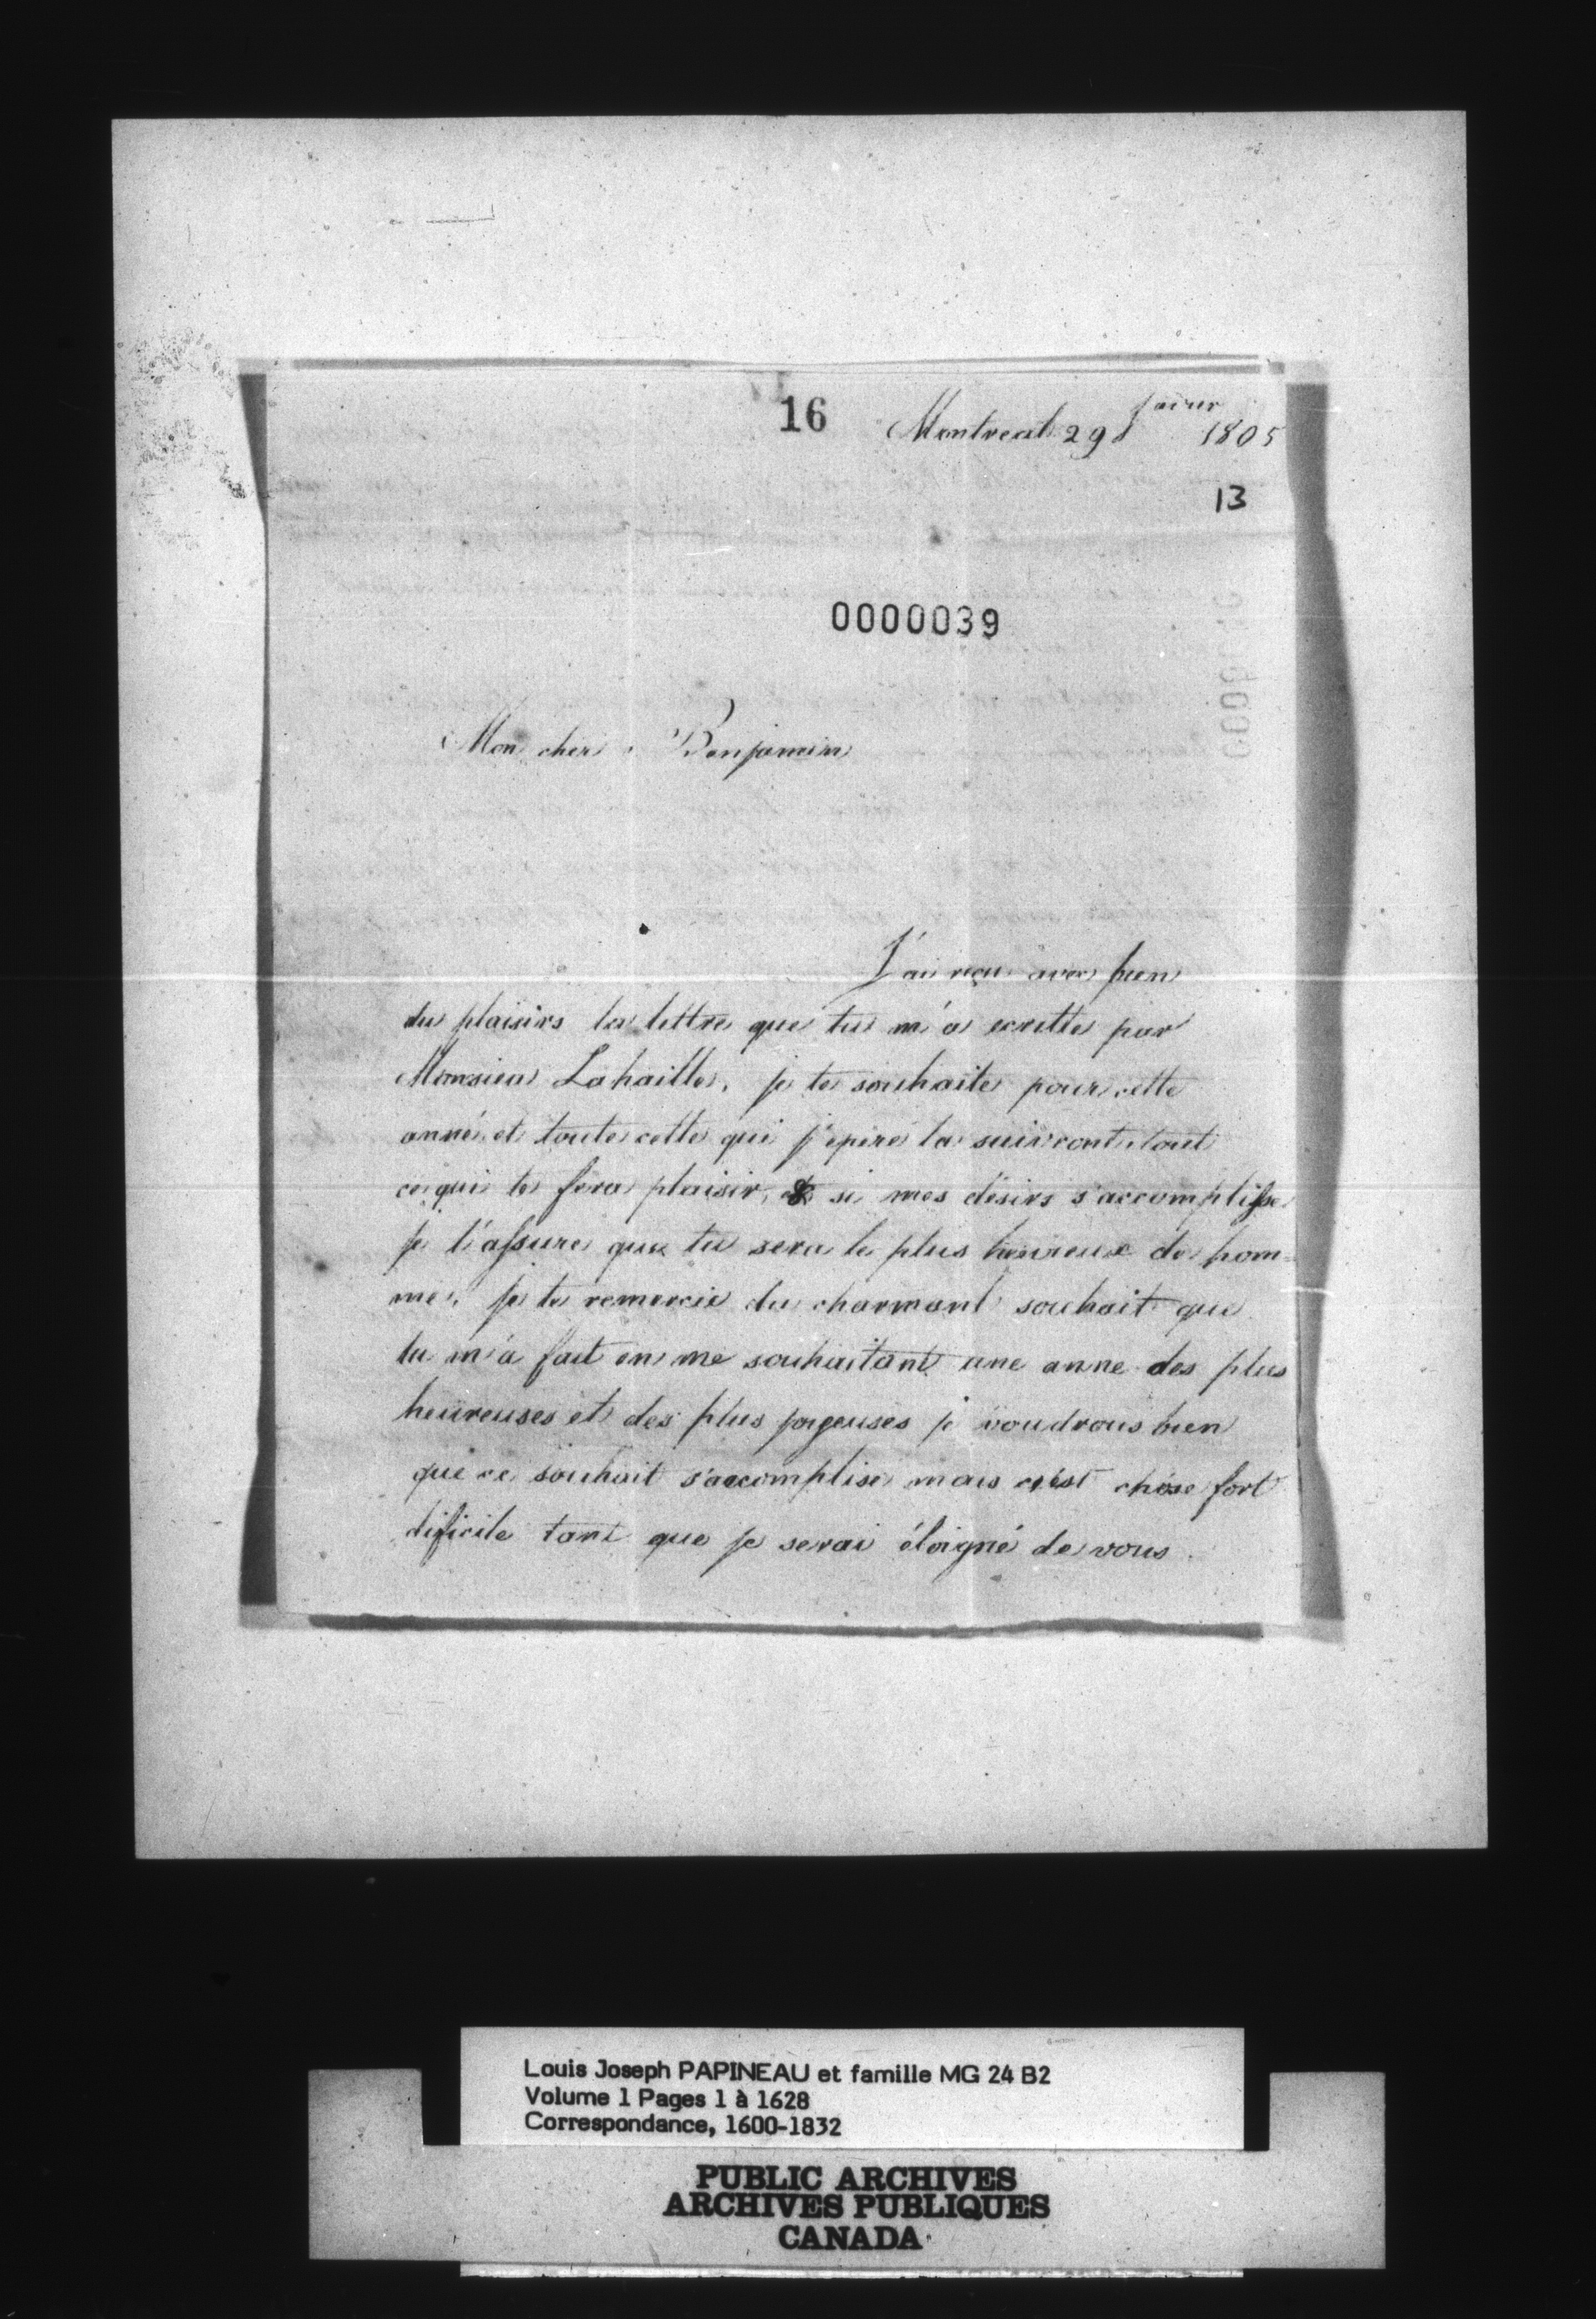 16 Montreal 29 janvier 1805
13
0000039
Mon cher Benjamin
J'ai reçu avec bien
du plaisirs la lettre que tu m'a écritte par
Monsieur Lahaille, je te souhaite pour cette
anné et toute cette qui j'epere la suivront tout
ce qui te fera plaisir, & si mes désirs s'accomplisse
je t'assure que tu sera le plus heureux de hom=
me, je te remercie du charmant souhait que
tu m'a fait en me souhaitant une anne des plus
heureuses et des plus joyeuses je voudrous bien
que ce souhait s'accomplise mais c'est chose fort
dificile tant que je serai éloigné de vous
Louis Joseph PAPINEAU et famille MG 24 B2
Volume 1 Pages 1 à 1628
Correspondance, 1600-1832
PUBLIC ARCHIVES
ARCHIVES PUBLIQUES
CANADA